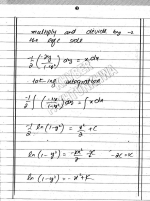 multiply and devide by -2
the L.H.S side
-1/2 (-2y/(1-y²)) dy = x dx
taking integration
-1/2 ∫ (-2y/(1-y²)) dy = ∫ x dx
-1/2 ln (1-y²) = x²/2 + c
ln (1-y²) = -2x²/2 -2c=k
ln (1-y²) = -x²+K